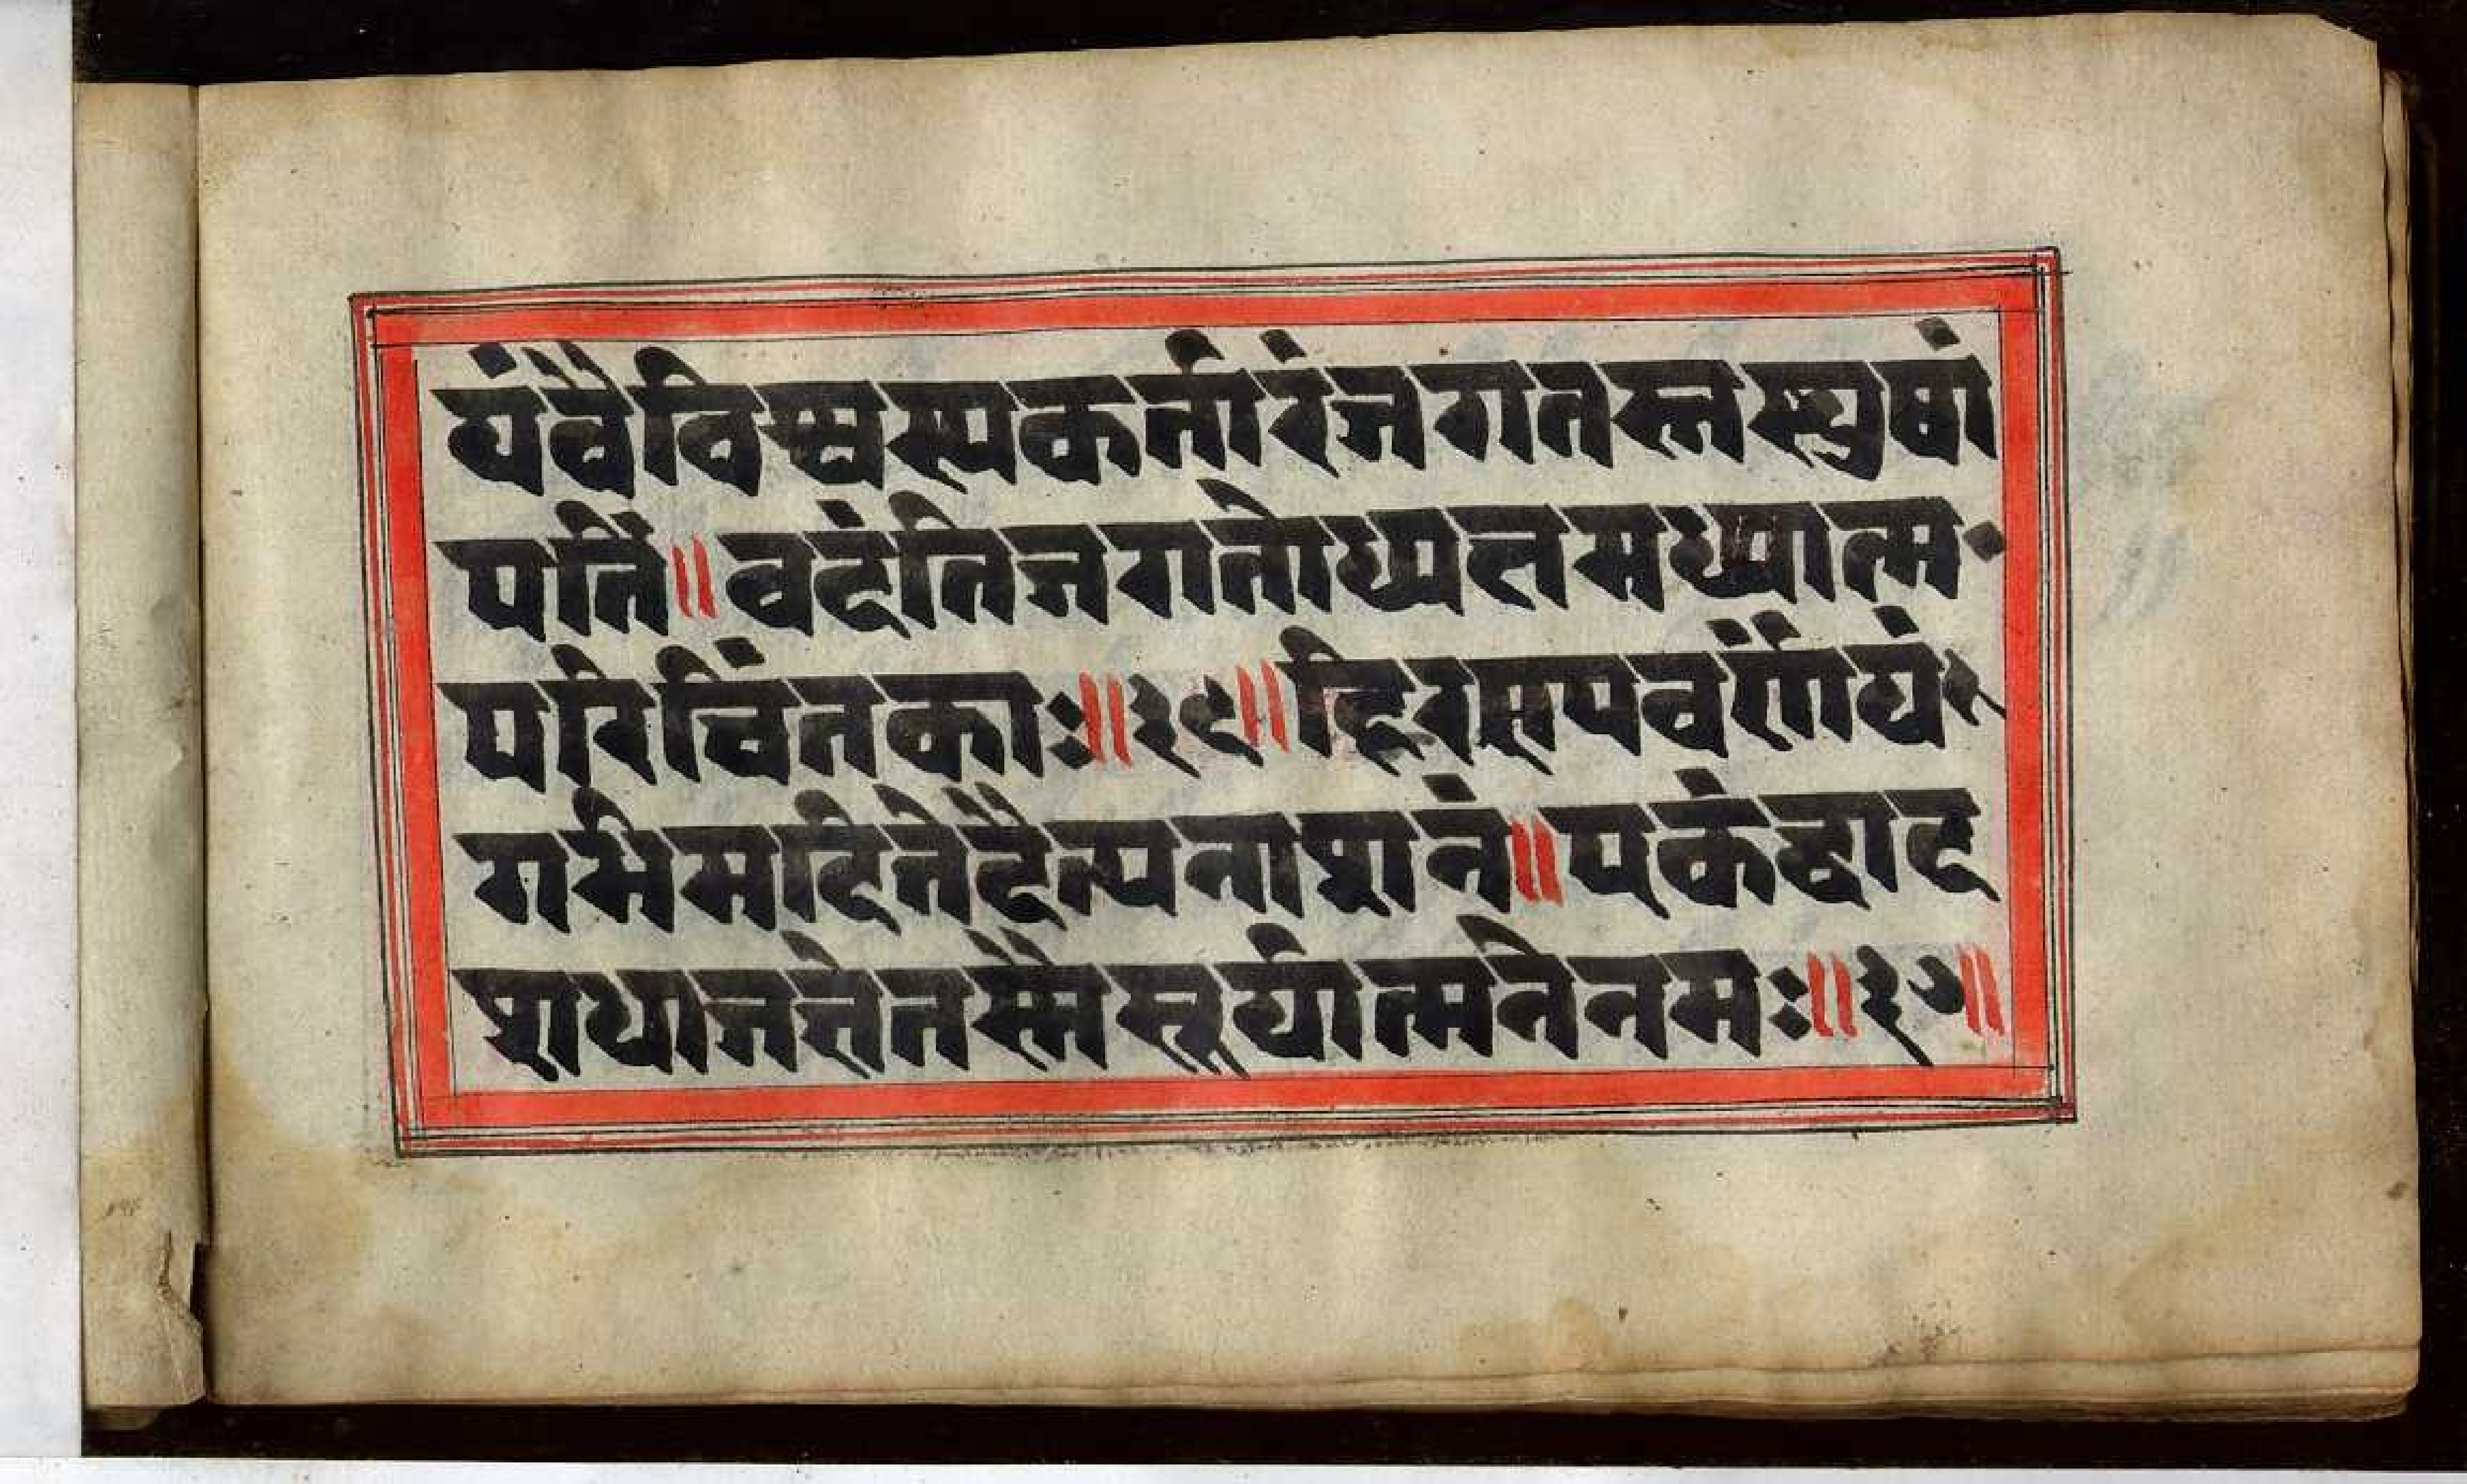 यंवैविश्वस्यकर्तारंजगतस्तस्थुषां
पतिं॥वदंतिजगतोध्यक्षमध्यात्म
परिचिंतकाः॥२९॥हिरण्यवर्णंयं
गर्भमदितेर्दैत्यनाशनं॥एकंद्वाद
शधाजज्ञेतस्मैसूर्यात्मनेनमः॥३०॥